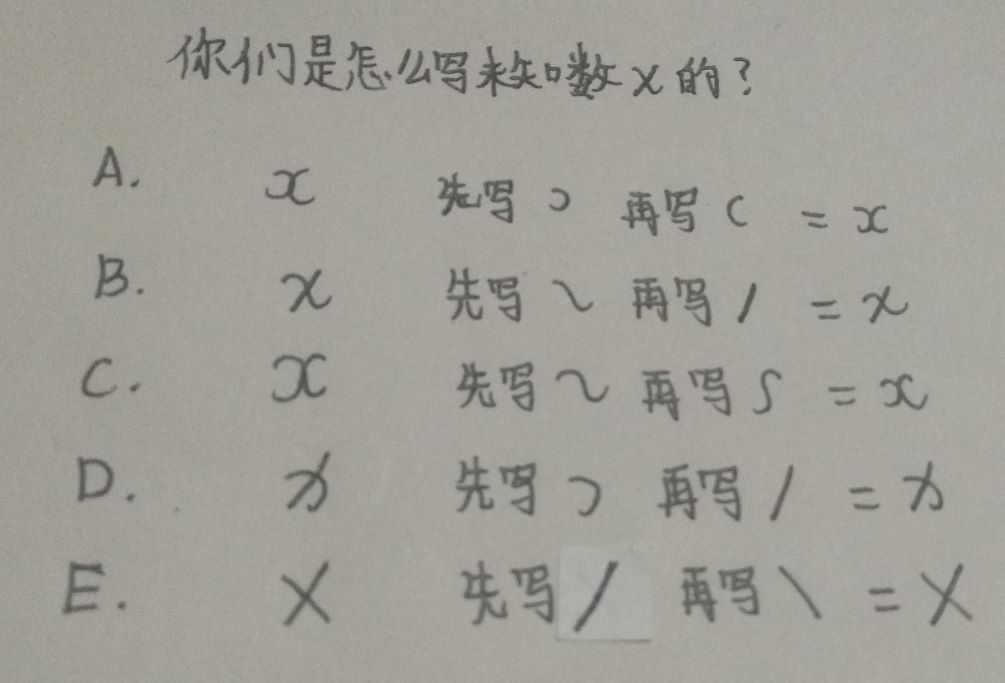 你们是怎么写未知数x的？
A. x 先写 ɔ 再写 c = x
B. x 先写 ㇏ 再写 / = x
C. x 先写 ~ 再写 ∫ = x
D. x 先写 ɔ 再写 / = x
E. X 先写 / 再写 \ = X